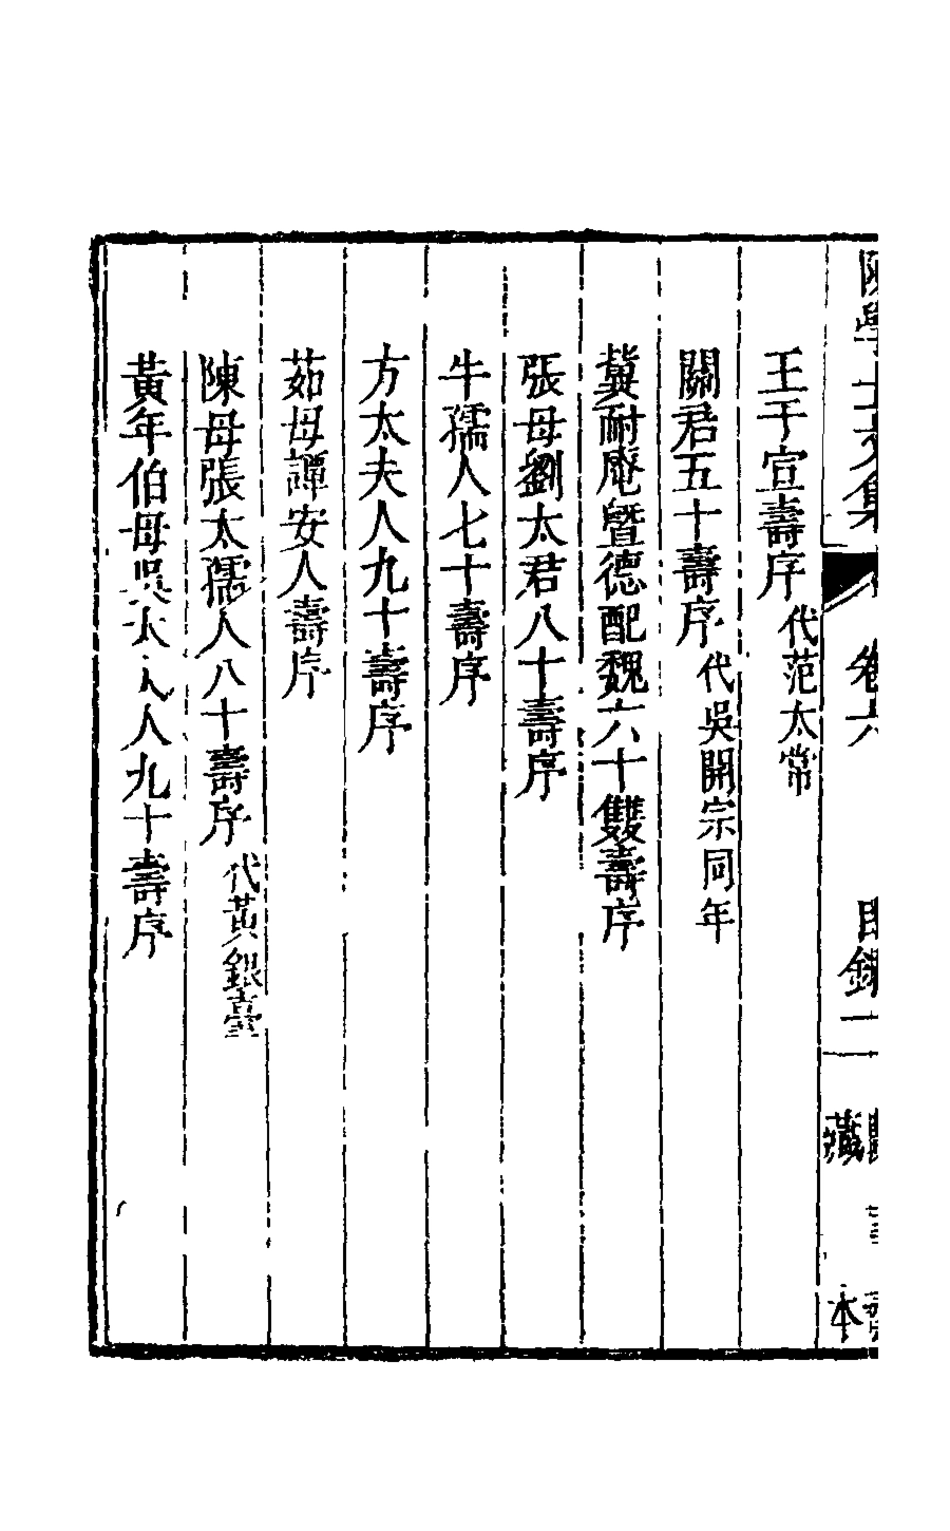 學士文集 卷六 目錄二 藏 本
王于宣壽序代范太常
關君五十壽序代吳開宗同年
冀耐庵曁德配魏六十雙壽序
張母劉太君八十壽序
牛孺人七十壽序
方太夫人九十壽序
茹母譚安人壽序
陳母張太孺人八十壽序代黃銀臺
黃年伯母吳太人九十壽序